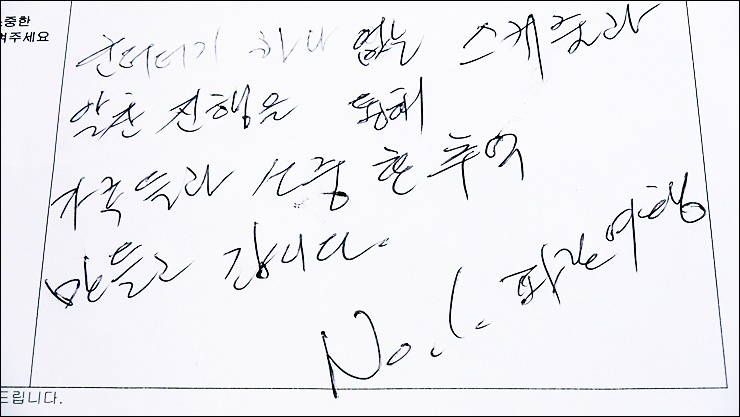 소중한
겨주세요
군더더기 하나 없는 스케줄과
알찬 진행을 통해
가족들과 소중한 추억
만들고 갑니다.
No.1. 파란여행
드립니다.